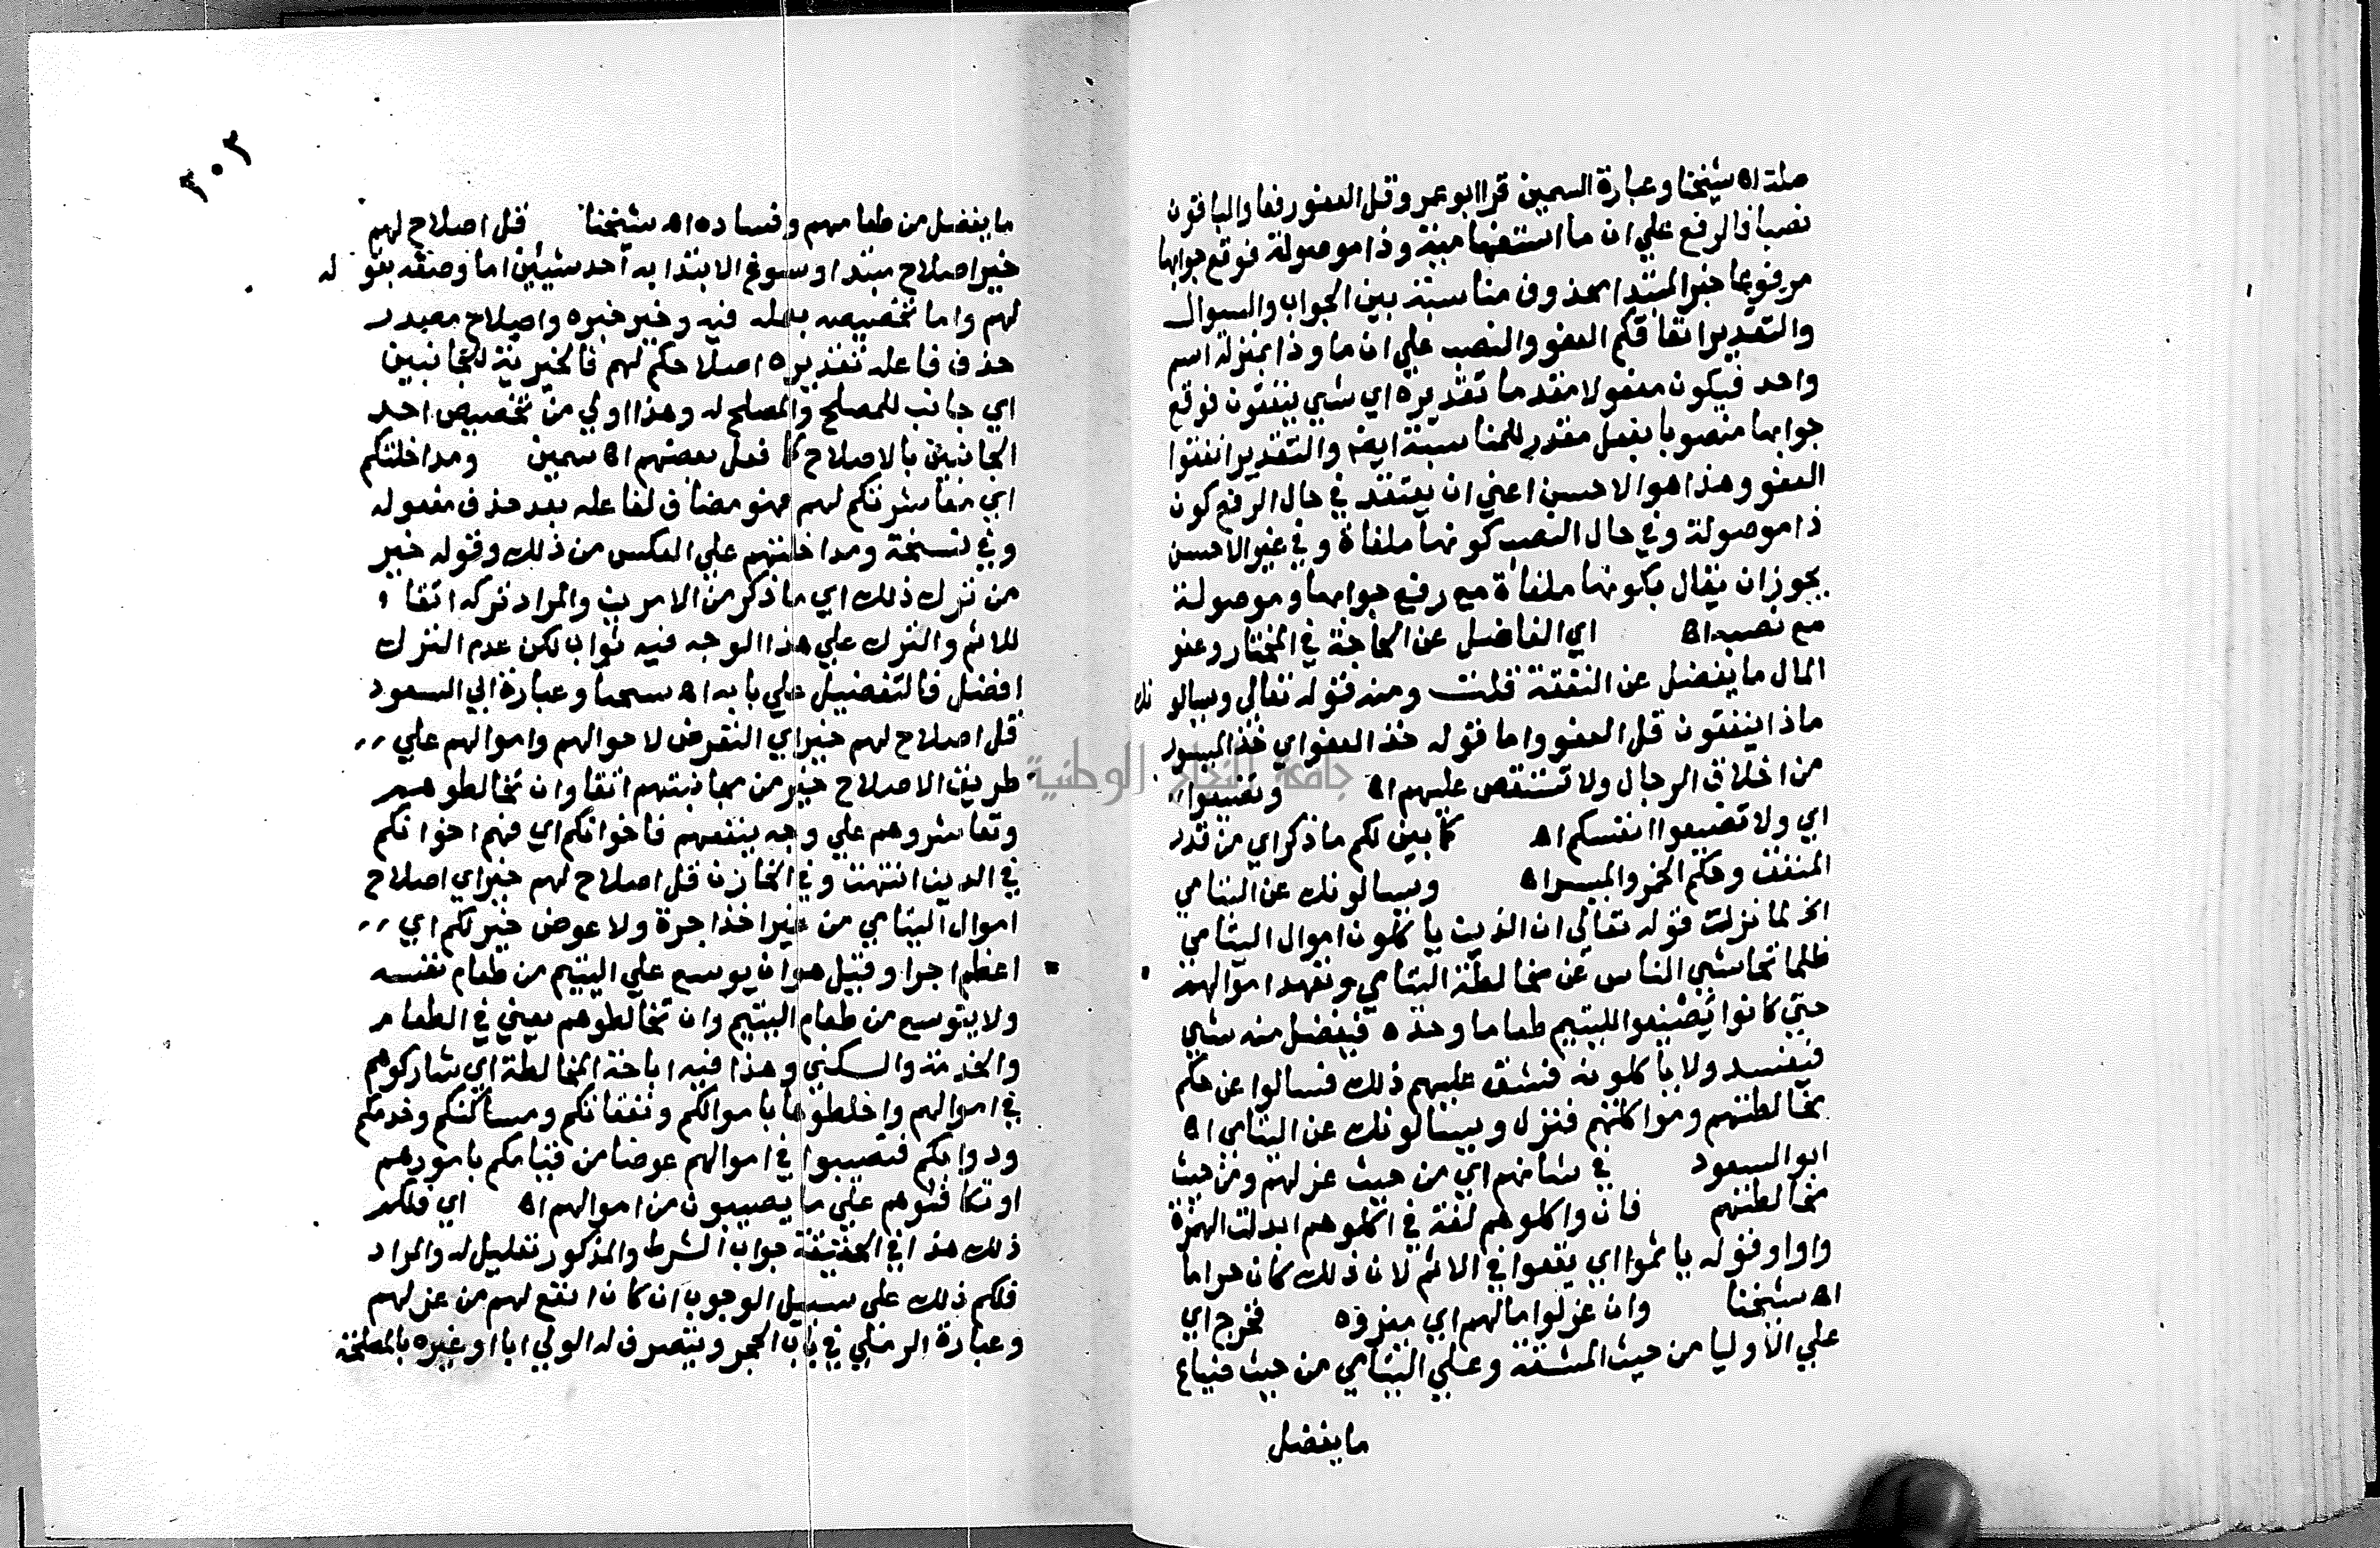 صلة اه شيخنا وعبارة السمين قرا ابو عمرو قل العفو رفعا والباقون
نصبا فالرفع علي ان ما استفهامية وذا موصولة فوقع جوابها
مرفوعا خبر المبتدا محذوف مناسبة بين الجواب والسوال
والتقدير انفاقكم العفو والنصب علي ان ما وذا بمنزلة اسم
واحد فيكون مفعولا مقدما تقديره اي شي ينفقون فوقع
جوابها منصوبا بفعل مقدر للمناسبة ايضا والتقدير انفقوا
العفو وهذا هو الاحسن اعني ان يعتقد في حال الرفع كون
ذا موصولة وفي حال النصب كونها ملغاة وفي غير الاحسن
يجوز ان يقال بكونها ملغاة مع رفع جوابها وموصولة
مع نصبه اه اي الفاضل عن الحاجة في المختار وعفو
المال ما يفضل عن النفقة قلت ومنه قوله تعالي ويسالونك
ماذا ينفقون قل العفو واما قوله خذ العفو اي خذ الميسور
من اخلاق الرجال ولا تستقص عليهم اه وتضيعوا
اي ولا تضيعوا انفسكم اه كما بين لكم ما ذكر اي من قدر
المنفق وحكم الخمر والميسر اه ويسالونك عن اليتامي
الخ لما نزلت قوله تعالي ان الذين ياكلون اموال اليتامي
ظلما تحاشي الناس عن مخالطة اليتامي وتعهد اموالهم
حتي كانوا يصنعوا لليتيم طعاما وحده فيفضل منه شي
فيفسد ولا ياكلونه فشق عليهم ذلك فسالوا عن حكم
مخالطتهم ومواكلتهم فنزل ويسالونك عن اليتامي اه
ابو السعود في شانهم اي من حيث عزلهم ومن حيث
مخالطتهم فان واكلوهم لغة في اكلوهم ابدلت الهمزة
واوا وقوله ياثموا اي يقعوا في الاثم لان ذلك كان حراما
اه شيخنا وان عزلوا مالهم اي ميزوه فحرج اي
علي الاوليا من حيث المشقة وعلي اليتامي من حيث ضياع
ما يفضل
٣٠٣
ما يفضل من طعامهم وفساده اه شيخنا قل اصلاح لهم
خير اصلاح مبتدا وسوغ الابتدا به احد شيئين اما وصفه بقوله
لهم واما تخصيصه بعمله فيه وخير خبره واصلاح مصدر
حذف فاعله تقديره اصلاحكم لهم فالخيرية للجانبين
اي جانب للمصلح والمصلح له وهذا اولي من تخصيص احد
الجانبين بالاصلاح كما فعل بعضهم اه سمين ومداخلتكم
اي معاشرتكم لهم فهو مضاف لفاعله بعد حذف مفعوله
وفي نسخة ومداخلتهم علي العكس من ذلك وقوله خير
من ترك ذلك اي ما ذكر من الامرين والمراد تركه اتقا
للاثم والترك علي هذا الوجه فيه ثواب لكن عدم الترك
افضل فالتفضيل علي بابه اه شيخنا وعبارة ابي السعود
قل اصلاح لهم خير اي التعرض لاحوالهم واموالهم علي
طريق الاصلاح خير من مجانبتهم اتقا وان تخالطوهم
وتعاشروهم علي وجه ينفعهم فاخوانكم اي فهم اخوانكم
في الدين انتهت وفي الخازن قل اصلاح لهم خير اي اصلاح
اموال اليتامي من غير اخذ اجرة ولا عوض خير لكم اي
اعظم اجرا وقيل هو ان يوسع علي اليتيم من طعام نفسه
ولا يتوسع من طعام اليتيم وان تخالطوهم يعني في الطعام
والخدمة والسكني وهذا فيه اباحة المخالطة اي شاركوهم
في اموالهم واخلطوها باموالكم ونفقاتكم ومساكنكم وخدمكم
ودوابكم فتصيبوا في اموالهم عوضا من قيامكم بامورهم
او تكافئوهم علي ما يصيبون من اموالهم اه اي فلكم
ذلك هذا في الحقيقة جواب الشرط والمذكور تعليل له والمراد
فلكم ذلك علي سبيل الوجوب ان كان انفع لهم من عزلهم
وعبارة الرملي في باب الحجر ويتصرف له الولي ابا او غيره بالمصلحة
جامعة النجاح الوطنية